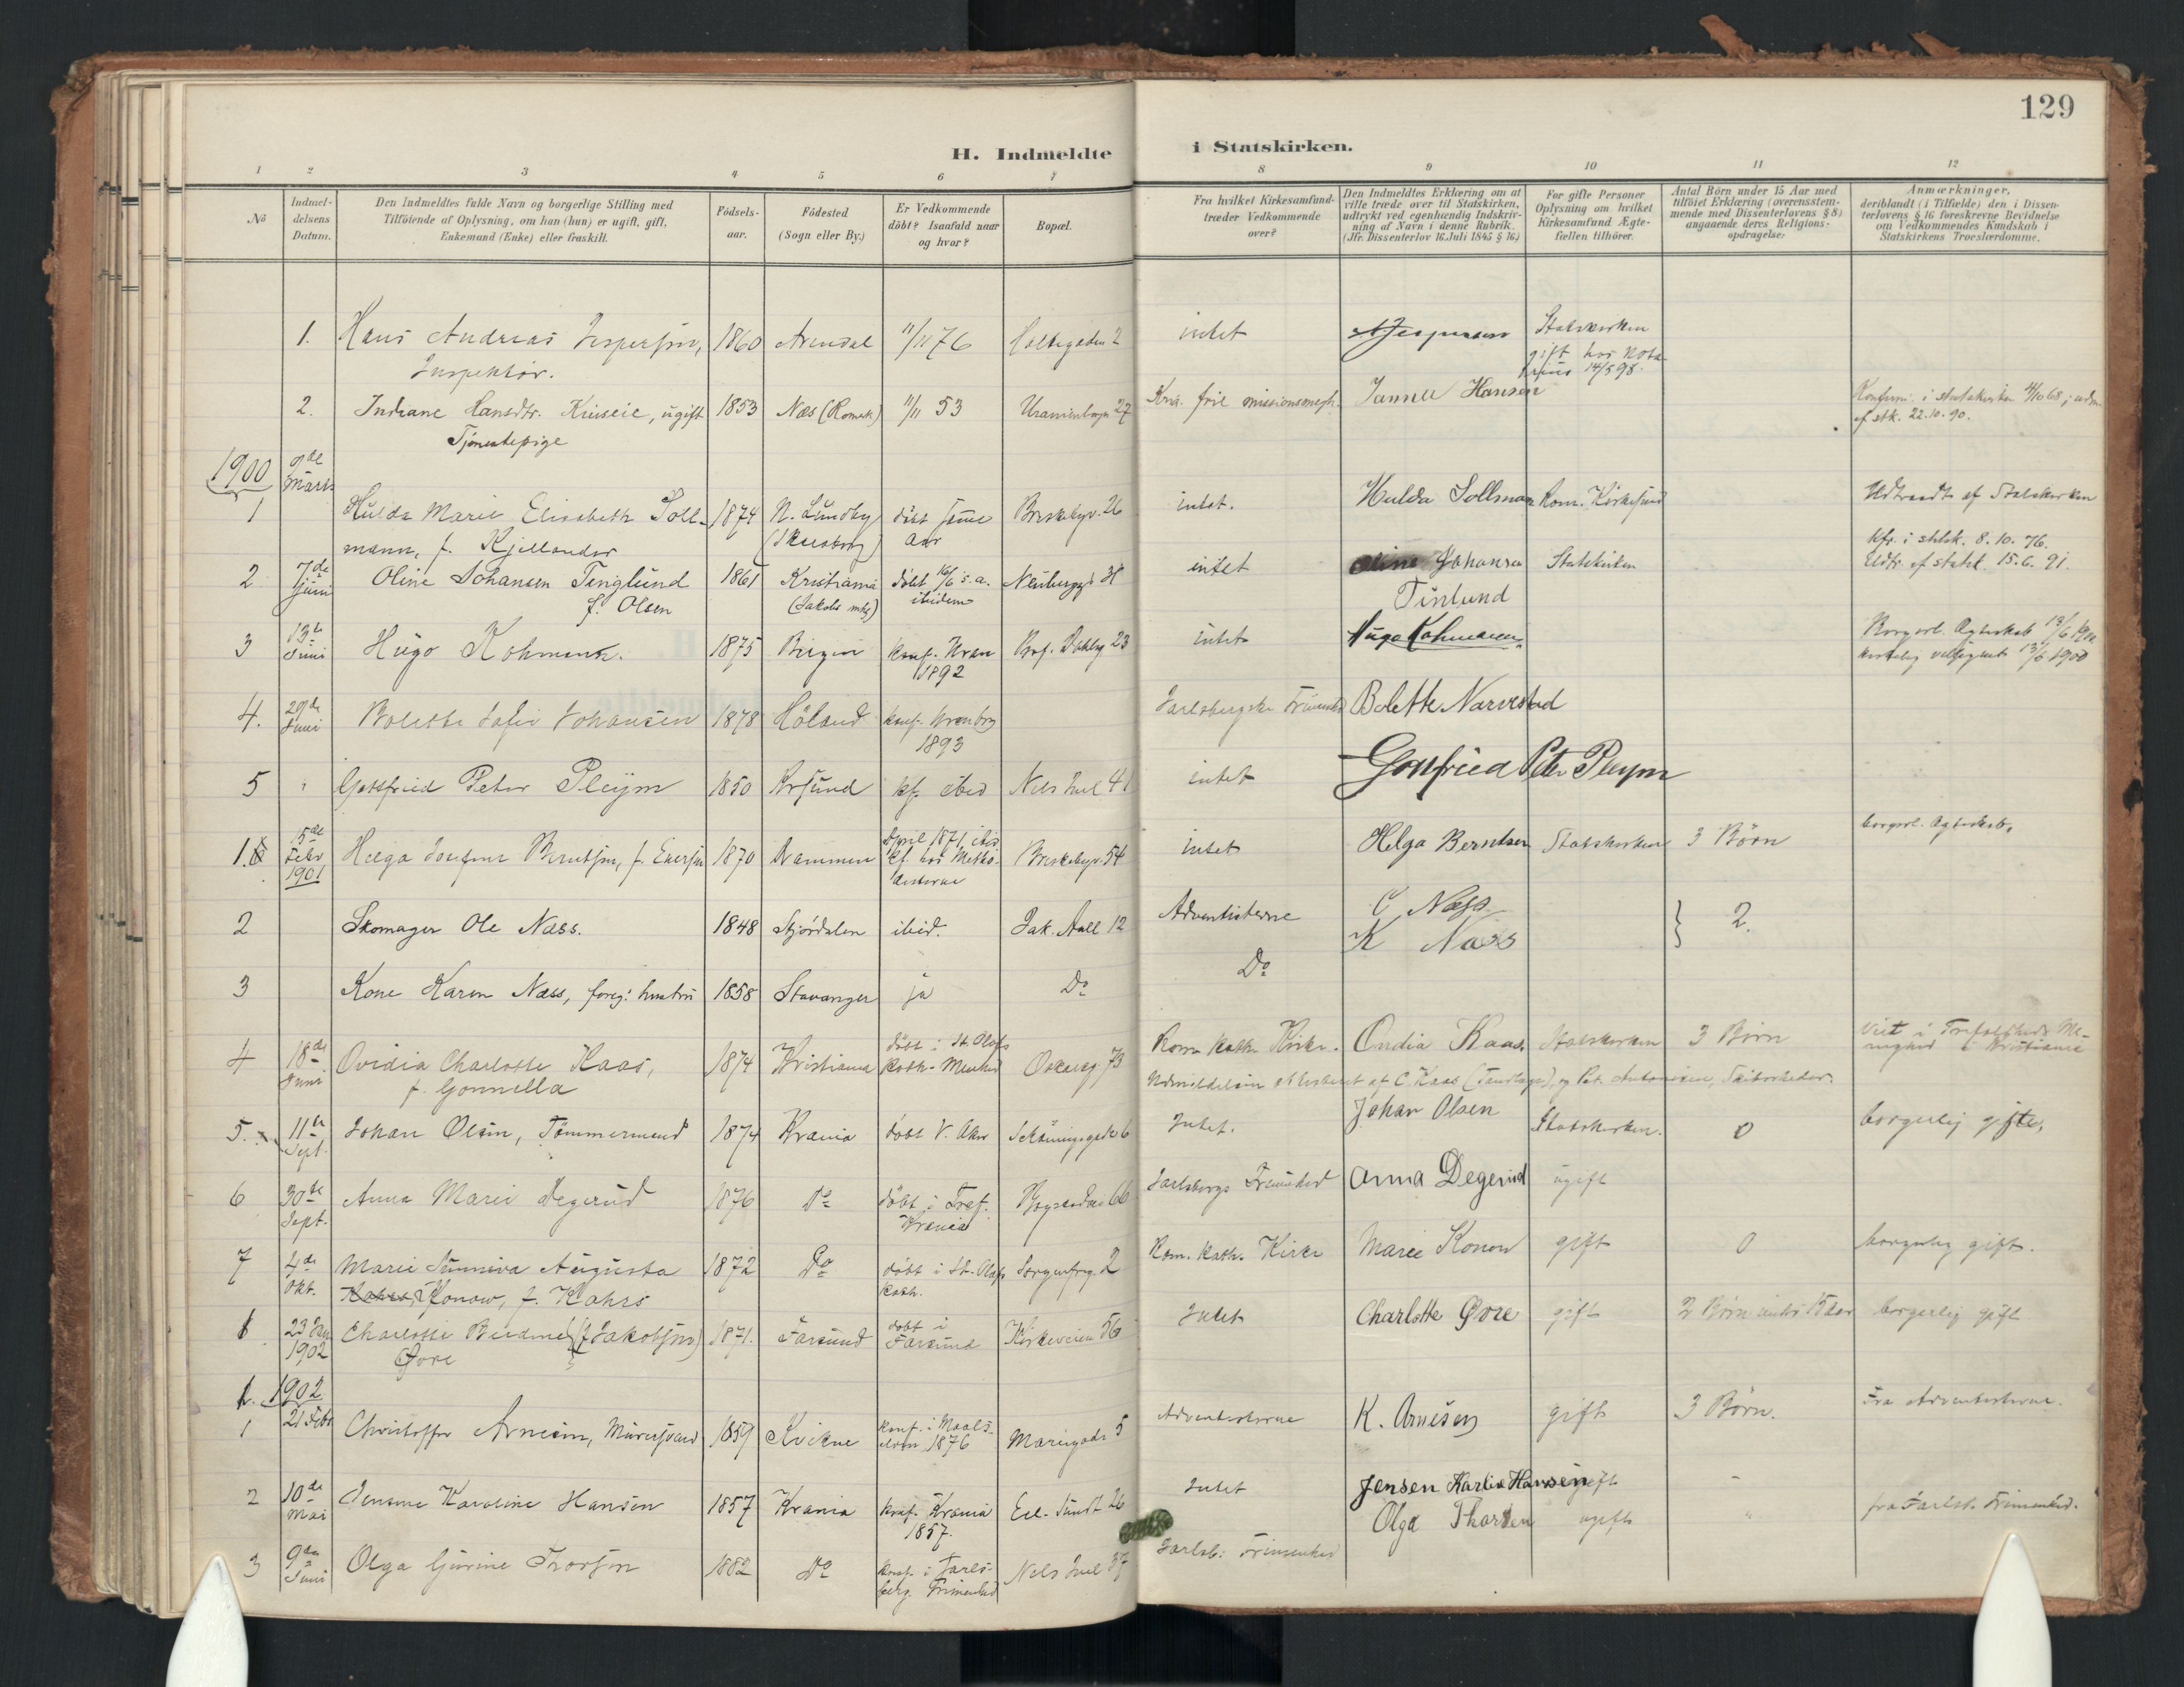 129
H. Indmeldte i Statskirken.
1 2 3 4 5 6 7 8 9 10 11 12
No
Indmel-
delsens
Datum.
Den Indmeldtes fulde Navn og borgerlige Stilling med
Tilföiende af Oplysning, om han (hun) er ugift, gift,
Enkemand (Enke) eller fraskilt.
Födsels-
aar.
Födested
(Sogn eller By.)
Er Vedkommende
döbt? Isaafald naar
og hvor?
Bopæl.
Fra hvilket Kirkesamfund
træder Vedkommende
over?
Den Indmeldtes Erklæring om at
ville træde over til Statskirken,
udtrykt ved egenhændig Indskriv-
ning af Navn i denne Rubrik.
(Jfr. Dissenterlov 16 Juli 1845 § 16.)
For gifte Personer
Oplysning om hvilket
Kirkesamfund Ægte-
fællen tilhörer.
Antal Börn under 15 Aar med
tilföiet Erklæring (overensstem-
mende med Dissenterlovens § 8)
angaaende deres Religions-
opdragelse.
Anmærkninger,
deriblandt (i Tilfælde) den i Dissen-
terlovens § 16 foreskrevne Bevidnelse
om Vedkommendes Kundskab i
Statskirkens Troeslærdomme.
1. Hans Andreas Jespersen, 1860 Arendal 11/11 76 Holtegaden 2 intet Jespersen Statskirken
Inspektör. gift hos Nota-
rius 14/5 98.
2. Indiane Hansdtr. Kinseie, ugift 1853 Næs (Romek) 11/11 53 Uranienborg 27 Kria. frie missionsmegh. Hansen Konfirm. i statskirken 4/10 68; udm.
Tjenestepige af stk. 22.10.90.
1900 9de
Marts
1 Hulda Marie Elisabeth Soll- 1874 N. Lundby döbt samme Briskebyv. 26 intet. Hulda Sollman Rom. Kirkesfund Udtraadt af Statskirken
mann, f. Kjellander (Skaraborg) Aar
2 7de Juni Oline Johansen Tinglund 1861 Kristiania döbt 16/6 s.a. Neubergg 31 intet Oline Johansen Statskirken kfr. i statsk. 8.10.76.
f. Olsen (Jakobs mh) ibidem Tinlund Udtr. af statsk. 15.6.91.
3 13de Juni Hugo Kohmann. 1875 konf. Uran 1892 Prof. Dahlsg 23 intet Hugo Kohmann Borgerl. Ægteskab 13/6 1900
kirkelig velsignet 13/6 1900
4. 29de Juni Bolette Sofie Johansen 1878 Höland konf. Uranborg 1893 Jarlsbergske Frimenhd Bolette Narvestad
5 " Gottfried Peter Pleym 1850 Krsund kf. ibid Nels Juel 41 intet Gottfried Peter Pleym
1. 15de Febr. 1901 Helga Josefine Berntsen, f. Enersen 1870 Drammen April 1871, ibid Briskebyv. 54 intet Helga Berntsen Statskirken 3 Börn borgerl. Ægteskab.
kf. hos Metho-
disterne
2 Skomager Ole Næss. 1848 Stjördalen ibid. Jak. Aall 12 Adventisterne O Næss } 2.
3 Kone Karen Næss, foreg: hustru 1858 Stavanger ja Do Do K Næss
4 18de Juni Ovidia Charlotte Kaas, 1874 Kristiania döbt i St. Olafs Oskarsg. 73 Rom. kath. Kirke. Ovidia Kaas Statskirken 3 Börn viet i Trefoldigheds Me-
f. Gonnella kath. Menhed nighed i Kristiania
Udmeldelsen attesteret af C. Kaas (Tandlæge), og Pet. Antonisen, Skibsreder.
5. 11te Sept. Johan Olsen, Tömmermand 1874 Krania döbt V. Aker Schöningsgade 6 Intet. Johan Olsen Statskirken. 0 borgerlig gifte,
6 30te Sept. Anna Marie Degerud 1876 Do döbt i Tref. Krania Bogstadvei 66 Jarlsbergs Frimenhed Anna Degerud ugift
7 4de Okt. Marie Sunniva Augusta 1872 Do döbt i St. Olafs kath. Sorgenfrig. 2 Rom. kath. Kirke Marie Konow gift 0 borgerlig gift.
Konow, f. Kahrs
1 23 Jan 1902 Charlotte (f. Jakobsen) 1871. Farsund döbt i Farsund Kirkeveien 56 Intet Charlotte Øvre gift 2 Börn under 15 Aar borgerlig gift
Øvre
1902
1 21 Febr Christoffer Arnesen, Murersvend 1859 Kvikne konf. i Maals- Mariegade 5 Adventisterne K. Arnesen gift 3 Börn. Fra Adventisterne.
elven 1876
2 10de Mai Jensine Karoline Hansen 1857 Krania konf. Krania 1857. Eil. Sundt 26 Intet Jensen Karline Hansen gift "
3 9de Juni Olga Gurine Thorsen 1882 Do konf. i Jarls- Nels Juel 37 Jarlsb: Frimenhed Olga Thorsen ugift " fra Jarlsb. Frimenhd.
berg. Frimenhed